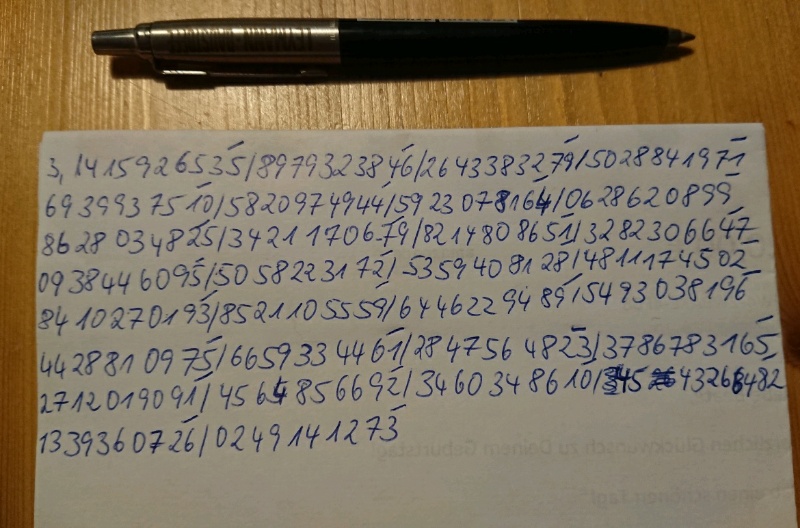 3,1415926535/8979323846/2643383279/5028841971
6939937510/5820974944/5923078164/0628620899
8628034825/3421170679/8214808651/3282306647
0938446095/5058223172/5359408128/4811174502
8410270193/8521105559/6446229489/5493038196
4428810975/6659334461/2847564823/3786783165
2712019091/4564856692/3460348610/4543266482
1339360726/0249141273